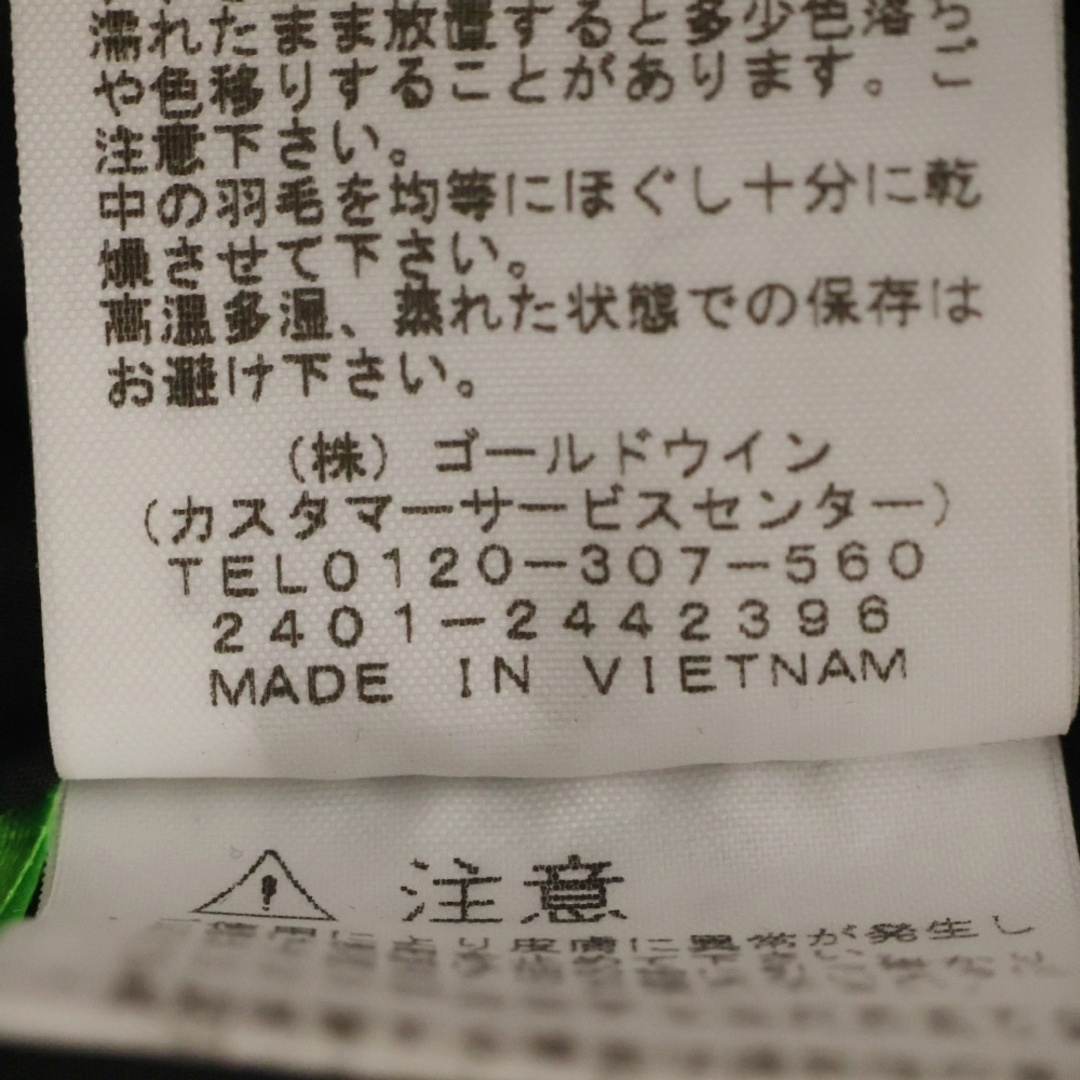 濡れたまま放置すると多少色落ち
や色移りすることがあります。ご
注意下さい。
中の羽毛を均等にほぐし十分に乾
燥させて下さい。
高温多湿、蒸れた状態での保存は
お避け下さい。
(株) ゴールドウイン
(カスタマーサービスセンター)
TEL0120-307-560
2401-2442396
MADE IN VIETNAM
注意
により皮膚に異常が発生し